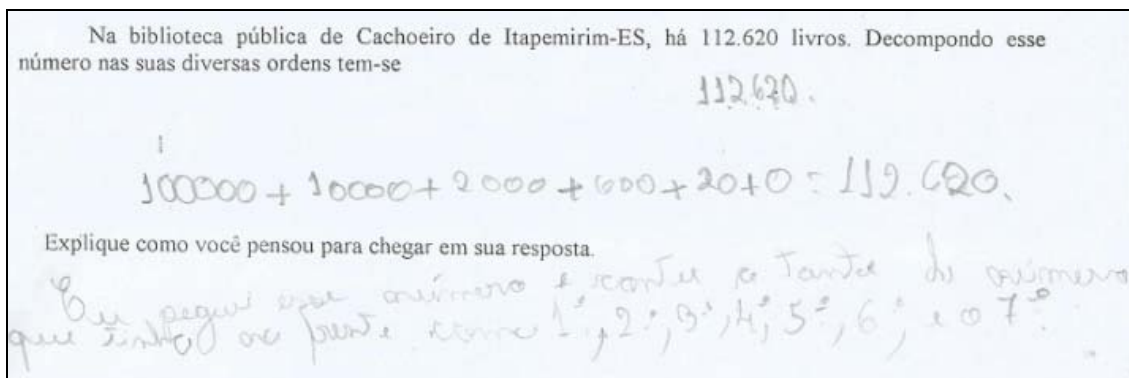 Na biblioteca pública de Cachoeiro de Itapemirim-ES, há 112.620 livros. Decompondo esse
número nas suas diversas ordens tem-se
112.620.
100000 + 10000 + 2000 + 600 + 20+0 = 112.620.
Explique como você pensou para chegar em sua resposta.
Eu peguei esse número e contei o tanto de número
que tinha na frente como 1º, 2º, 3º, 4º, 5º, 6º, e o 7º.